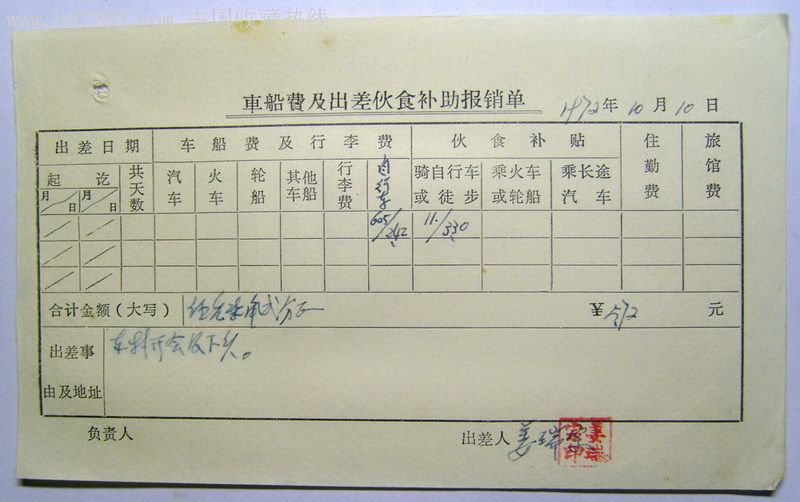 中国收藏热线
車船費及出差伙食补助报销单
1972年10月10日
出差日期 车船费及行李费 伙食补贴 住勤费 旅馆费
起 讫 共天数 汽车 火车 轮船 其他车船 行李费 自行车 骑自行车或徒步 乘火车或轮船 乘长途汽车
月 日 月 日
605/242 11./330
合计金额（大写） 伍元柒角弍分正 ¥572 元
出差事由及地址 开会及下乡。
负责人 出差人 姜瑞
姜瑞 印